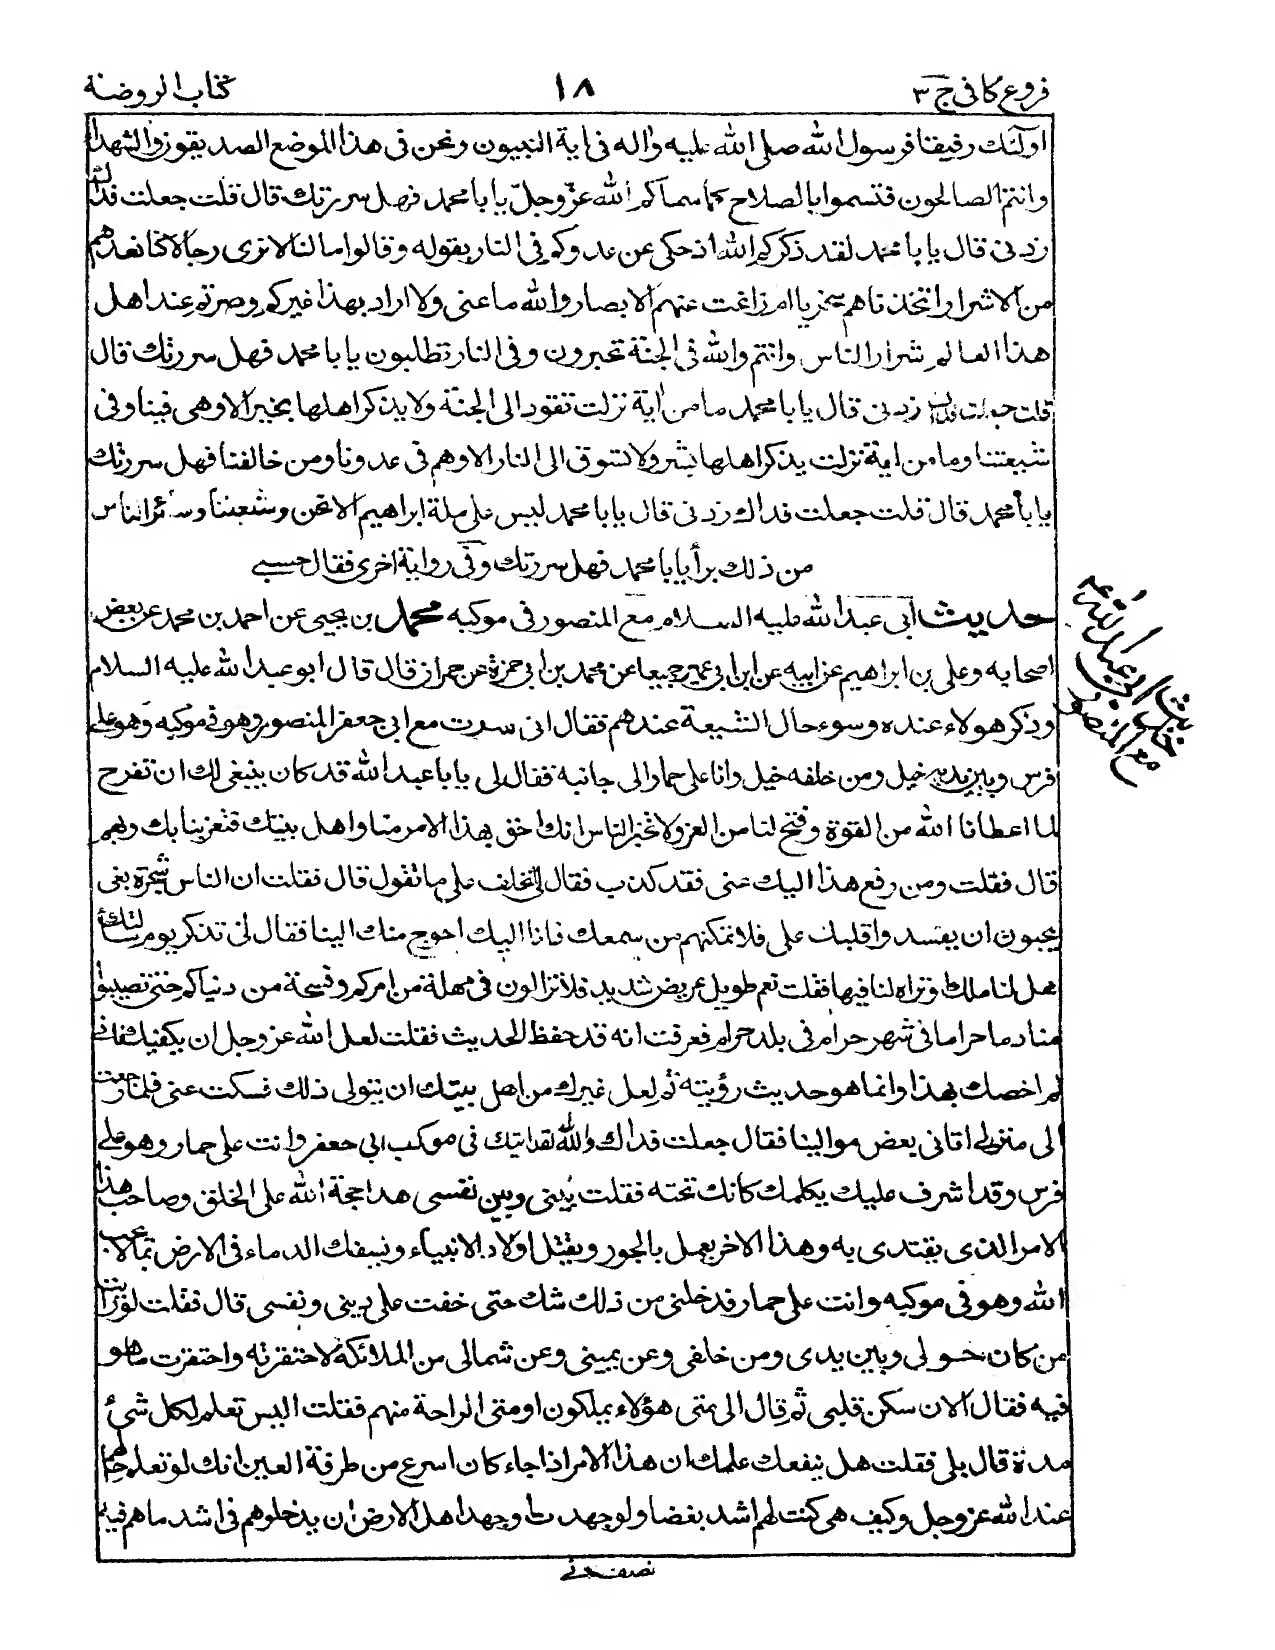 فروع كافى ج ٣
١٨
كتاب الروضة
اولئك رفيقا فرسول الله صلى الله عليه واله فى اية النبيون ونحن فى هذا الموضع الصديقون والشهداء
وانتم الصالحون فتسموا بالصلاح كما سماكم الله عز وجل يا با محمد فهل سررتك قال قلت جعلت فداك
زدنى قال يا با محمد لقد ذكركم الله اذ حكى عن عدوكم فى النار بقوله وقالوا ما لنا لا نرى رجالا كنا نعدهم
من الاشرار اتخذناهم سخريا ام زاغت عنهم الابصار والله ما عنى ولا اراد بهذا غيركم وصرتم عند اهل
هذا العالم شرار الناس وانتم والله فى الجنة تحبرون وفى النار تطلبون يا با محمد فهل سررتك قال
قلت جعلت فداك زدنى قال يا با محمد ما من اية نزلت تقود الى الجنة ولا يذكر اهلها بخير الا وهى فينا وفى
شيعتنا وما من اية نزلت يذكر اهلها بشر ولا تسوق الى النار الا وهم فى عدونا ومن خالفنا فهل سررتك
يا با محمد قال قلت جعلت فداك زدنى قال يا با محمد ليس على ملة ابراهيم الا نحن وشيعتنا وسائر الناس
من ذلك براء يا با محمد فهل سررتك وفى رواية اخرى فقال حسبى
حديث ابى عبد الله عليه السلام مع المنصور فى موكبه محمد بن يحيى عن احمد بن محمد عن بعض
اصحابه وعلى بن ابراهيم عن ابيه عن ابن ابى عمير جميعا عن محمد بن ابى حمزة عن حمران قال قال ابو عبد الله عليه السلام
وذكر هولاء عنده وسوء حال الشيعة عندهم فقال انى سرت مع ابى جعفر المنصور وهو فى موكبه وهو على
فرس وبين يديه خيل ومن خلفه خيل وانا على حمار الى جانبه فقال لى يا با عبد الله قد كان ينبغى لك ان تفرح
لما اعطانا الله من القوة وفتح لنا من العز ولا تخبر الناس انك احق بهذا الامر منا واهل بيتك فتغرينا بك وبهم
قال فقلت ومن رفع هذا اليك عنى فقد كذب فقال لى اتحلف على ما تقول قال فقلت ان الناس سحرة يعنى
يحبون ان يفسدوا قلبك على فلا تمكنهم من سمعك فانا اليك احوج منك الينا فقال لى تذكر يوم سالتك
هل لنا ملك وتراه لنا فيها فقلت نعم طويل عريض شديد فلا تزالون فى مهلة من امركم وفسحة من دنياكم حتى تصيبوا
منا دما حراما فى شهر حرام فى بلد حرام فعرفت انه قد حفظ الحديث فقلت لعل الله عز وجل ان يكفيك فانى
لم اخصك بهذا وانما هو حديث رويته ثم لعل غيرك من اهل بيتك ان يتولى ذلك فسكت عنى فلما رجعت
الى منزلى اتانى بعض موالينا فقال جعلت فداك والله لقد رايتك فى موكب ابى جعفر وانت على حمار وهو على
فرس وقد اشرف عليك يكلمك كانك تحته فقلت بينى وبين نفسى هذا حجة الله على الخلق وصاحب هذا
الامر الذى يقتدى به وهذا الاخر يعمل بالجور ويقتل اولاد الانبياء ويسفك الدماء فى الارض بما لا يحب
الله وهو فى موكبه وانت على حمار فدخلنى من ذلك شك حتى خفت على دينى ونفسى قال فقلت لو رايت
من كان حولى وبين يدى ومن خلفى وعن يمينى وعن شمالى من الملائكة لاحتقرته واحتقرت ما هو
فيه فقال الان سكن قلبى ثم قال الى متى هؤلاء يملكون او متى الراحة منهم فقلت اليس تعلم لكل شئ
مدة قال بلى فقلت هل ينفعك علمك ان هذا الامر اذا جاء كان اسرع من طرفة العين انك لو تعلم حالهم
عند الله عز وجل وكيف هى كنت لهم اشد بغضا ولو جهدت وجهد اهل الارض ان يدخلوهم فى اشد ما هم فيه
حديث ابى عبد الله ع
مع المنصور